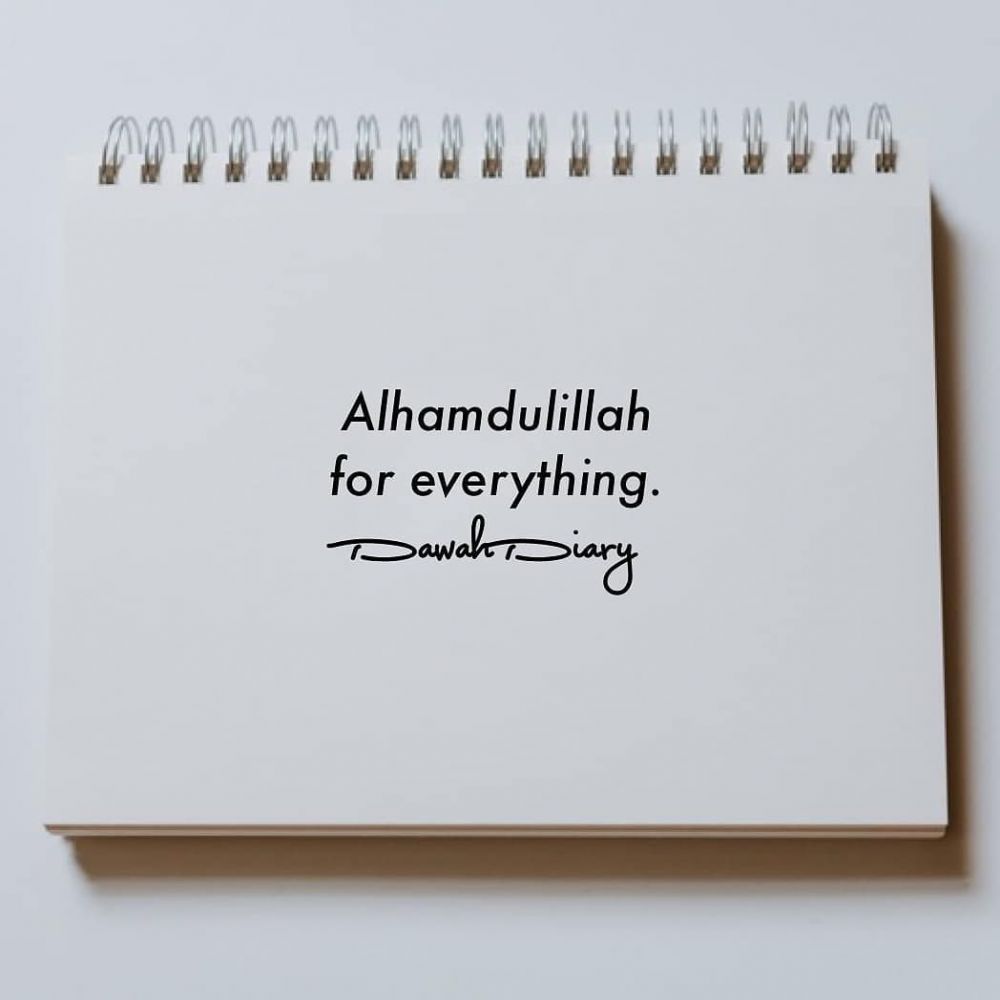 Alhamdulillah
for everything.
Dawah Diary